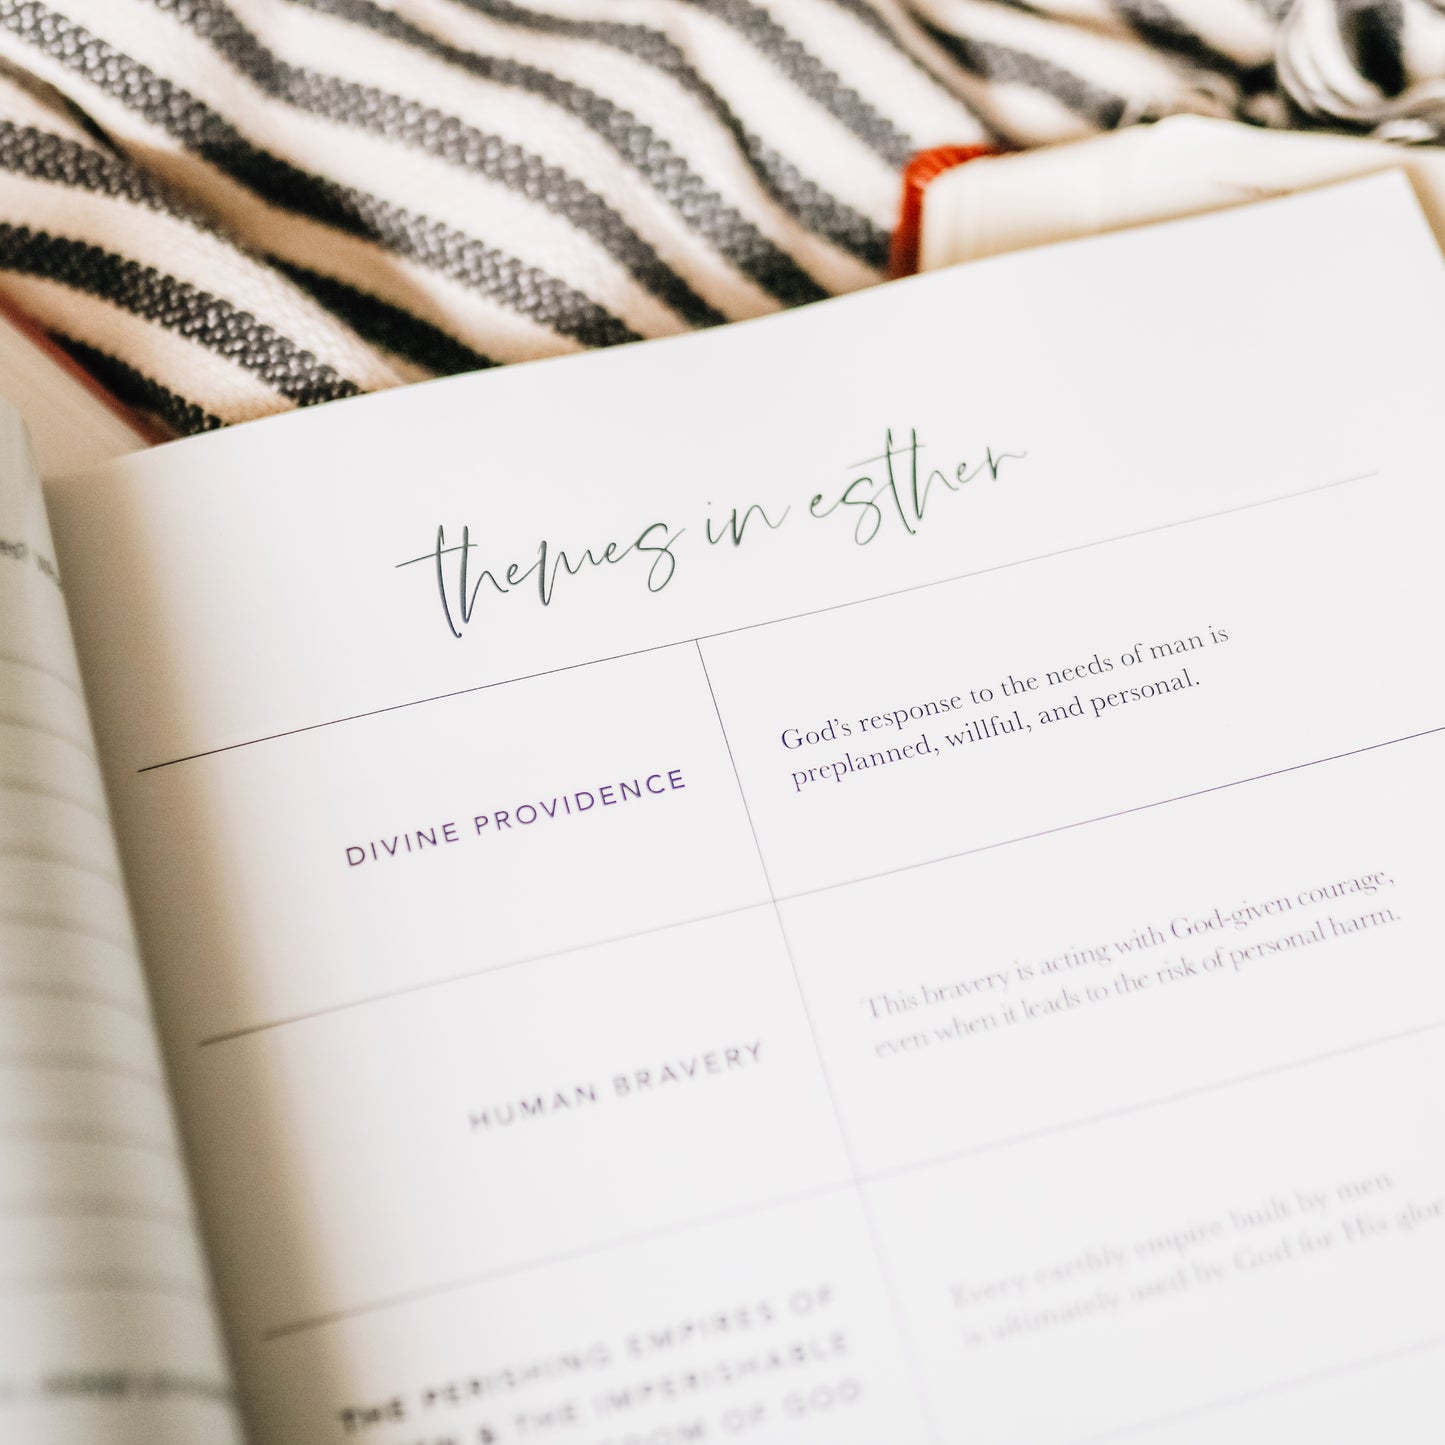 themes in esther
DIVINE PROVIDENCE
God's response to the needs of man is
preplanned, willful, and personal.
HUMAN BRAVERY
This bravery is acting with God-given courage,
even when it leads to the risk of personal harm.
THE PERISHING EMPIRES OF
& THE IMPERISHABLE
OF GOD
Every earthly empire built by men
is ultimately used by God for His